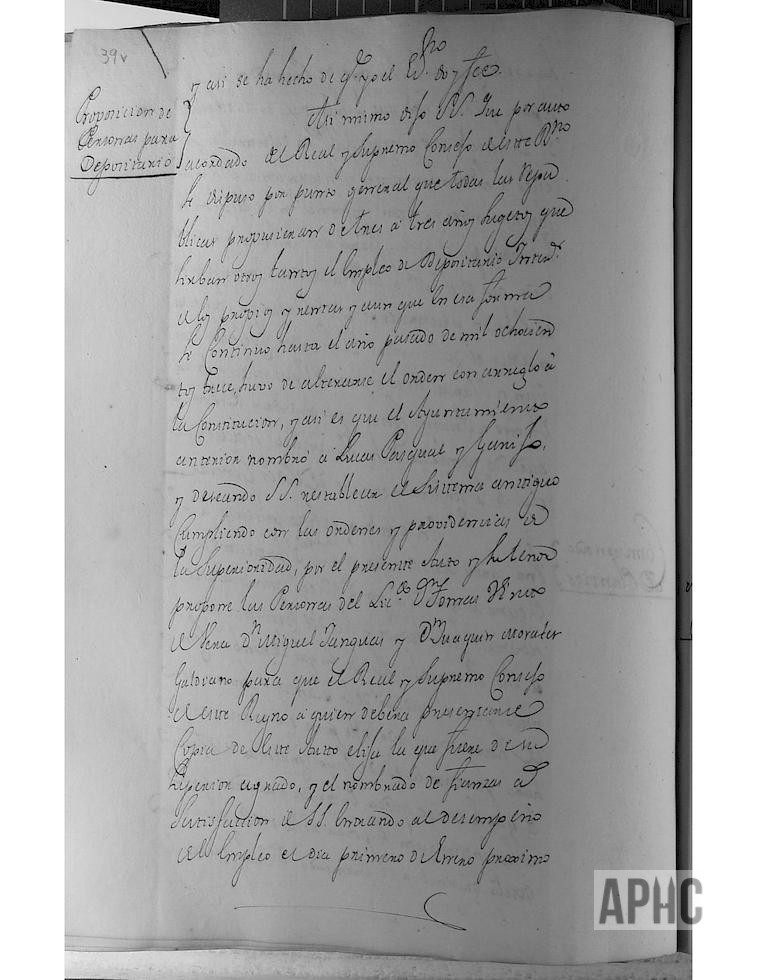 39v
y asi se ha hecho de q.e yo el Es.no doy fee.
Proposicion de
Personas para
Depositario
Asi mimo dijo S.S. Que por auto
acordado del Real y Supremo Consejo de este R.no
se dispuso por punto general que todas las Repu
blicas propusieran de tres a tres años sugetos que
sirban otros tantos el Empleo de Depositario
de los propios y rentas y aun que en esa forma
se Continuo hasta el año pasado de mil ochocien
tos trece, huvo de alterarse el orden con arreglo à
la Constitucion, y asi es que el Ayuntamiento
anterior nombró a Lucas Pasqual y
y deseando S.S. restablecer el Sistema antiguo
Cumpliendo con las ordenes y providencias de
la Superioridad, por el presente Auto y su tenor
propone las Personas del Lic.do D.n Tomas
de Vera D.n Miguel Tanguas y D.n Juaquin Morales
Galdeano para que el Real y Supremo Consejo
de este Reyno a quien debera presentarse
Copia de este Auto elija la que fuere de su
Superior agrado, y el nombrado de fianzas a
Satisfaccion de S.S. Entrando al desempeño
del Empleo el dia primero de Enero proximo
APHC